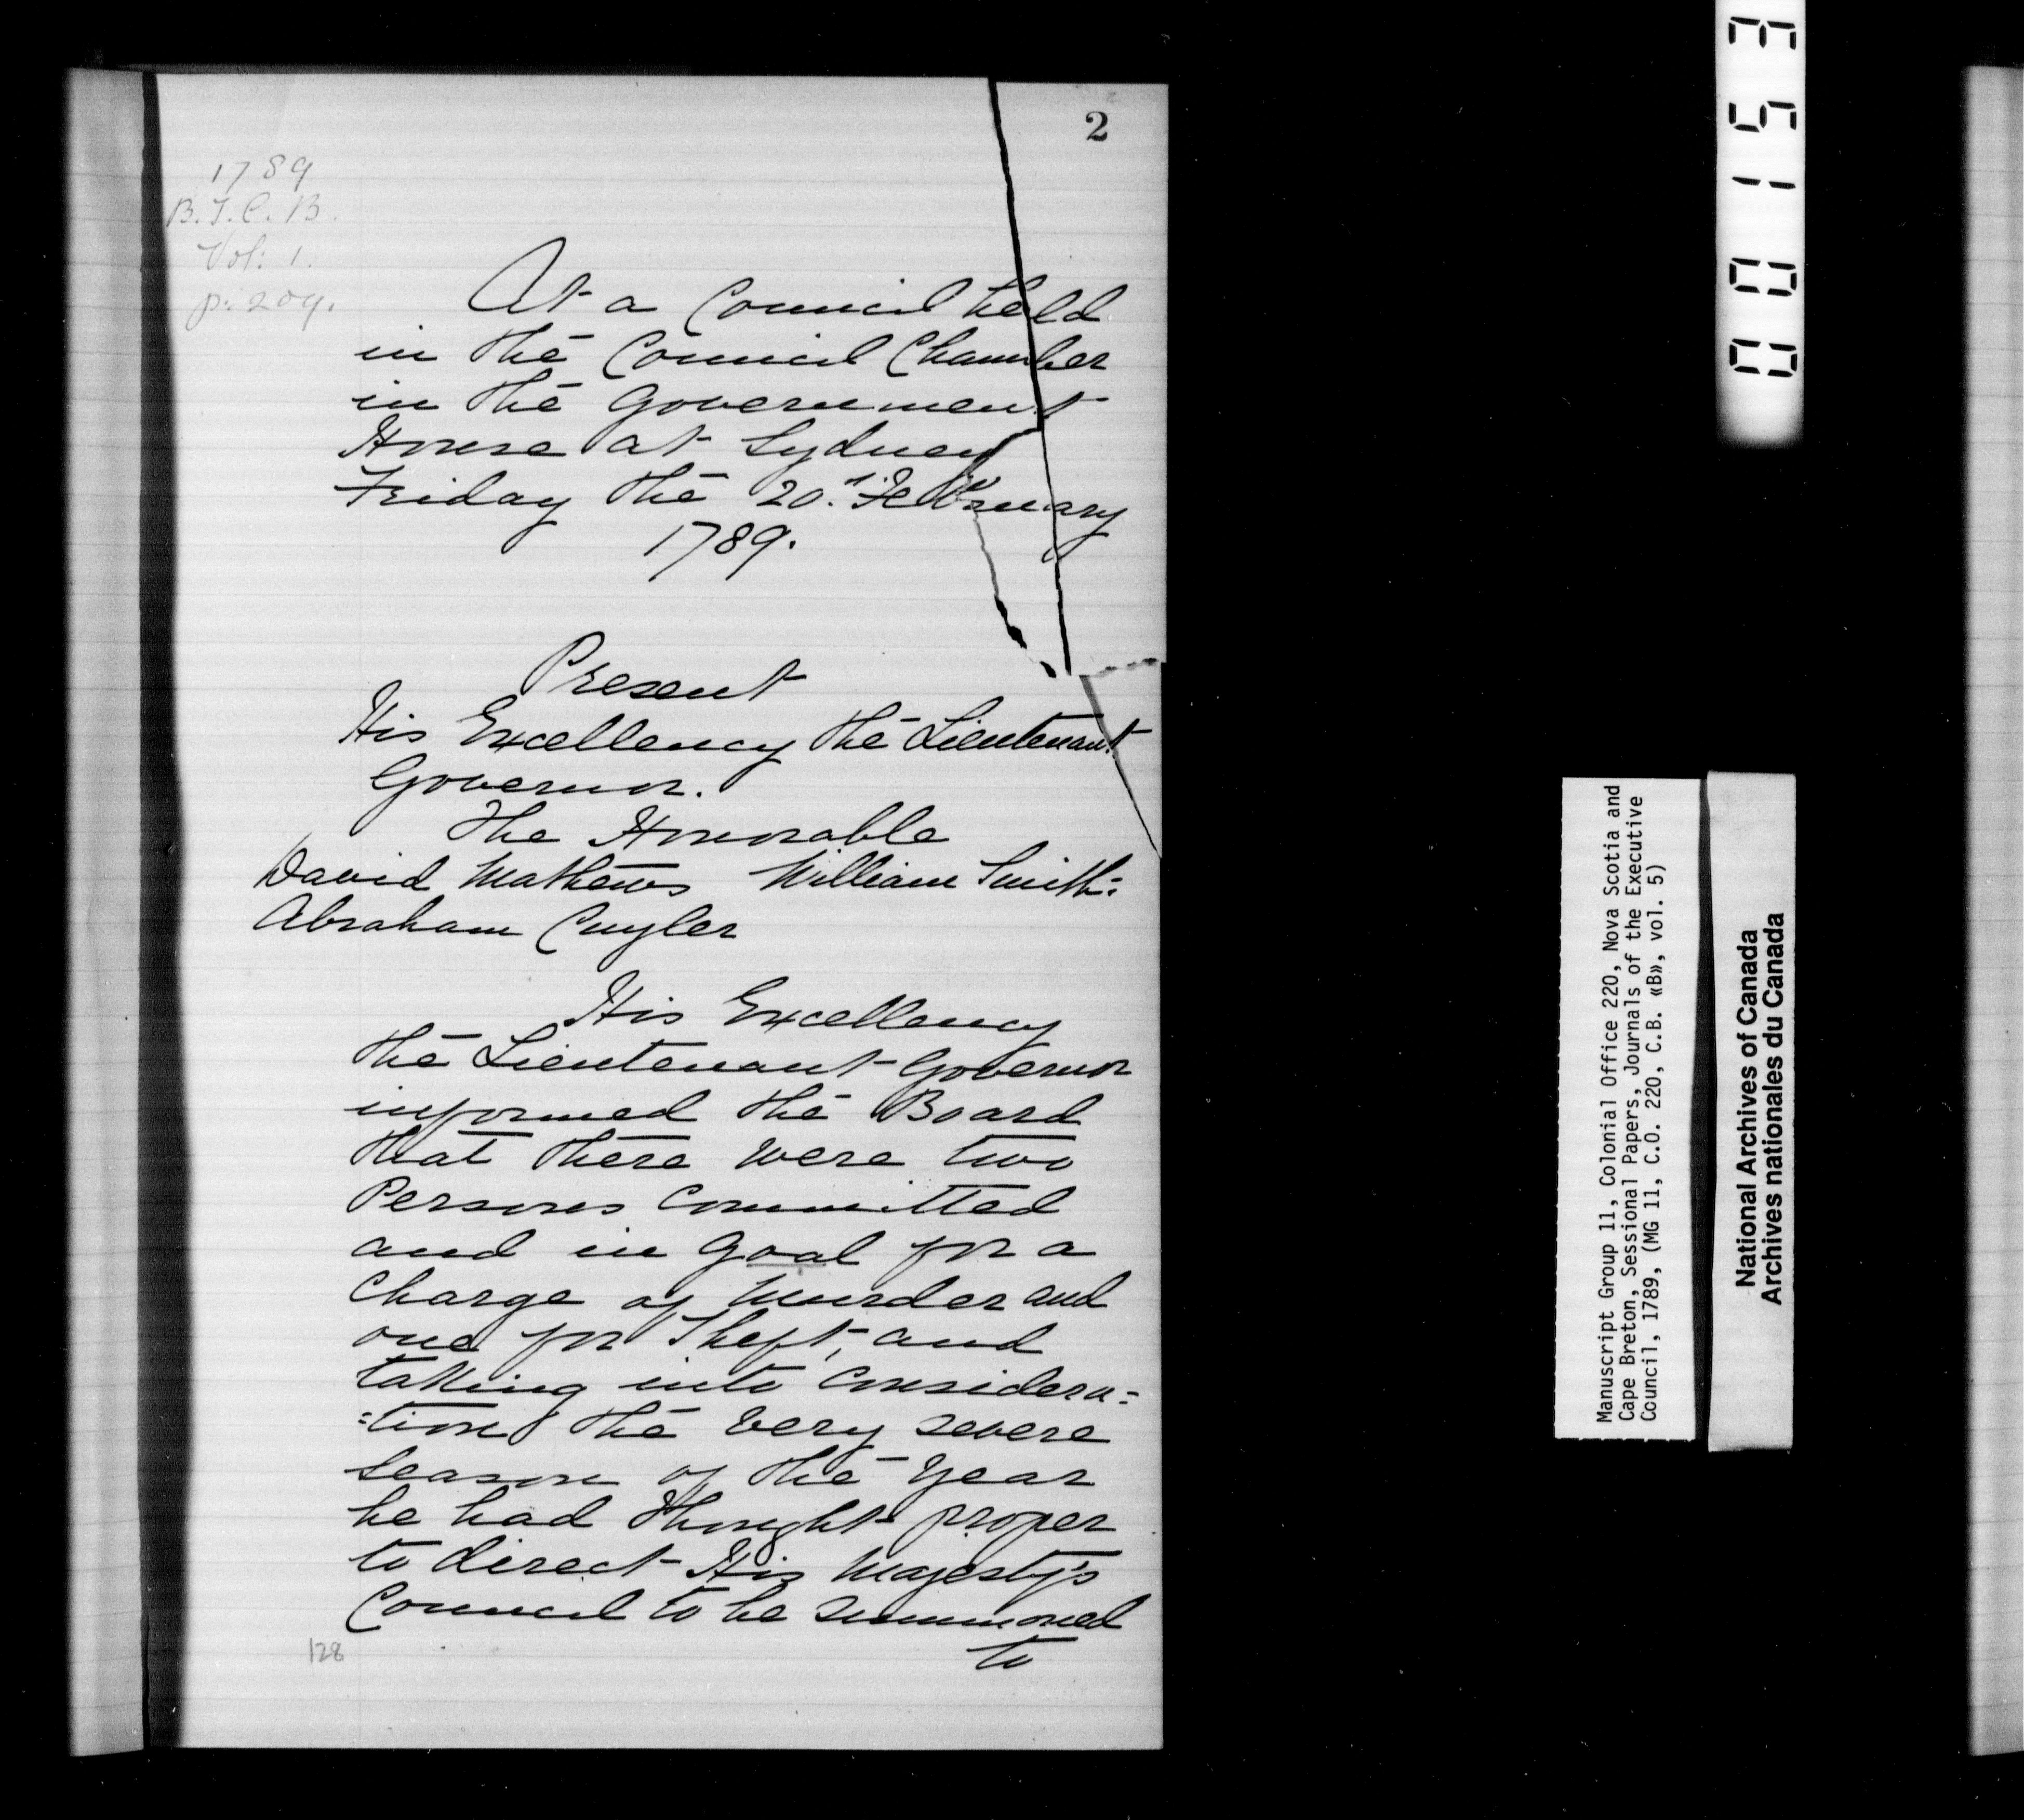 2
1789
B.T.C.B.
Vol: 1.
p: 209.
At a Council held
in the Council Chamber
in the Government
House at Sydney
Friday the 20. February
1789.
Present
His Excellency the Lieutenant
Governor.
The Honorable
David Mathews William Smith:
Abraham Cuyler
His Excellency
the Lieutenant Governor
informed the Board
that there were two
Persons committed
and in Goal for a
Charge of Murder and
one for Theft, and
taking into considera=
=tion the very severe
season of the Year
he had thought proper
to direct His Majesty's
Council to be summoned
to
128
00153
Manuscript Group 11, Colonial Office 220, Nova Scotia and
Cape Breton, Sessional Papers, Journals of the Executive
Council, 1789, (MG 11, C.O. 220, C.B. «B», vol. 5)
National Archives of Canada
Archives nationales du Canada